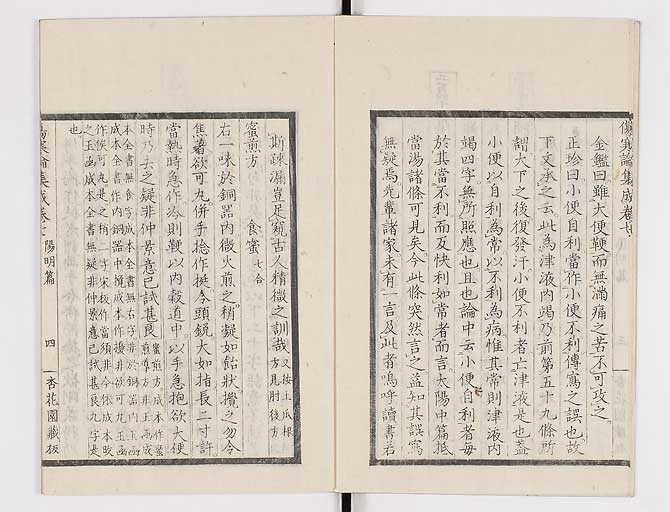 傷寒論集成卷七
金鑑曰雖大便鞕而無滿痛之苦不可攻之
正珍曰小便自利當作小便不利傳寫之誤也故
下文承之云此為津液內竭乃前第五十九條所
謂大下之後復發汗小便不利者亡津液是也蓋
小便以自利為常以不利為病惟其常則津液內
竭四字無所照應也且也論中云小便自利者每
於其當不利而反快利如常者而言太陽中篇抵
當湯諸條可見矣今此條突然言之益知其誤寫
無疑焉先輩諸家未有一言及此者嗚呼讀書若
斯疎漏豈足窺古人精微之訓哉又按土瓜根方見肘後方
蜜煎方 食蜜七合
右一味於銅器內微火煎之稍凝如飴狀攪之勿令
焦著欲可丸併手捻作挺令頭銳大如指長二寸許
當熱時急作冷則鞕以內穀道中以手急抱欲大便
時乃去之疑非仲景意已試甚良
也
傷寒論集成卷七 陽明篇 四 杏花園藏板